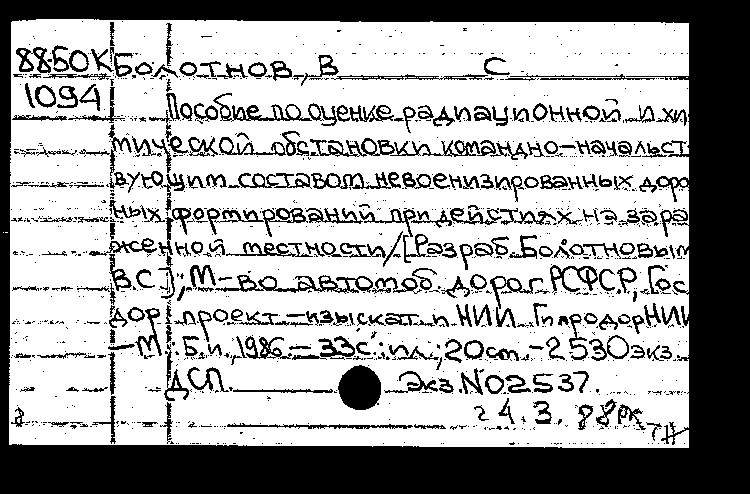 88-50К Болотнов, В С
1094
Пособие по оценке радиационной и хи
мической обстановки командно-начальст
вующим составом невоенизированных доро
ных формирований при действиях на зара
женной местности/[Разраб. Болотновым
В.С.]; М-во автомоб. дорог РСФСР, Гос
дор. проект.-изыскат. и НИИ ГипродорНИИ
-М.: Б.и., 1986.- 33с.: ил.; 20см.-2530экз.
ДСП. Экз.N02537.
24.3.88